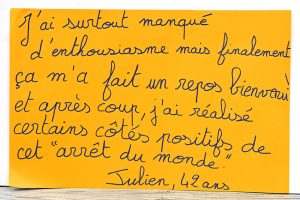 J'ai surtout manqué
d'enthousiasme mais finalement
ça m'a fait un repos bienvenu
et après coup, j'ai réalisé
certains côtés positifs de
cet "arrêt du monde".
Julien, 42 ans